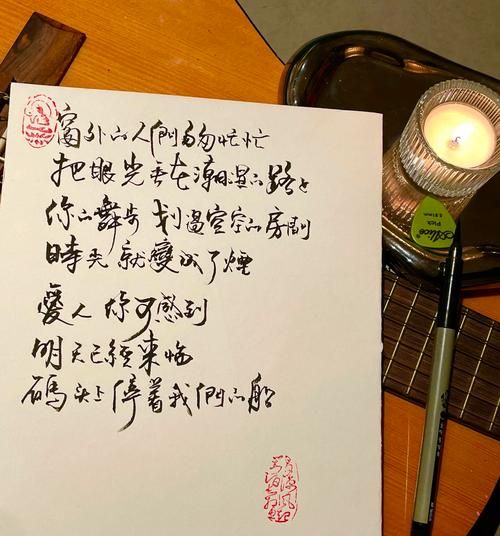 窗外的人們匆匆忙忙
把眼光丢在潮濕的路上
你的舞步 划過空空的房間
時光就變成了煙
愛人 你可感到
明天已經來臨
碼头上停着我們的船
Alice
Pick